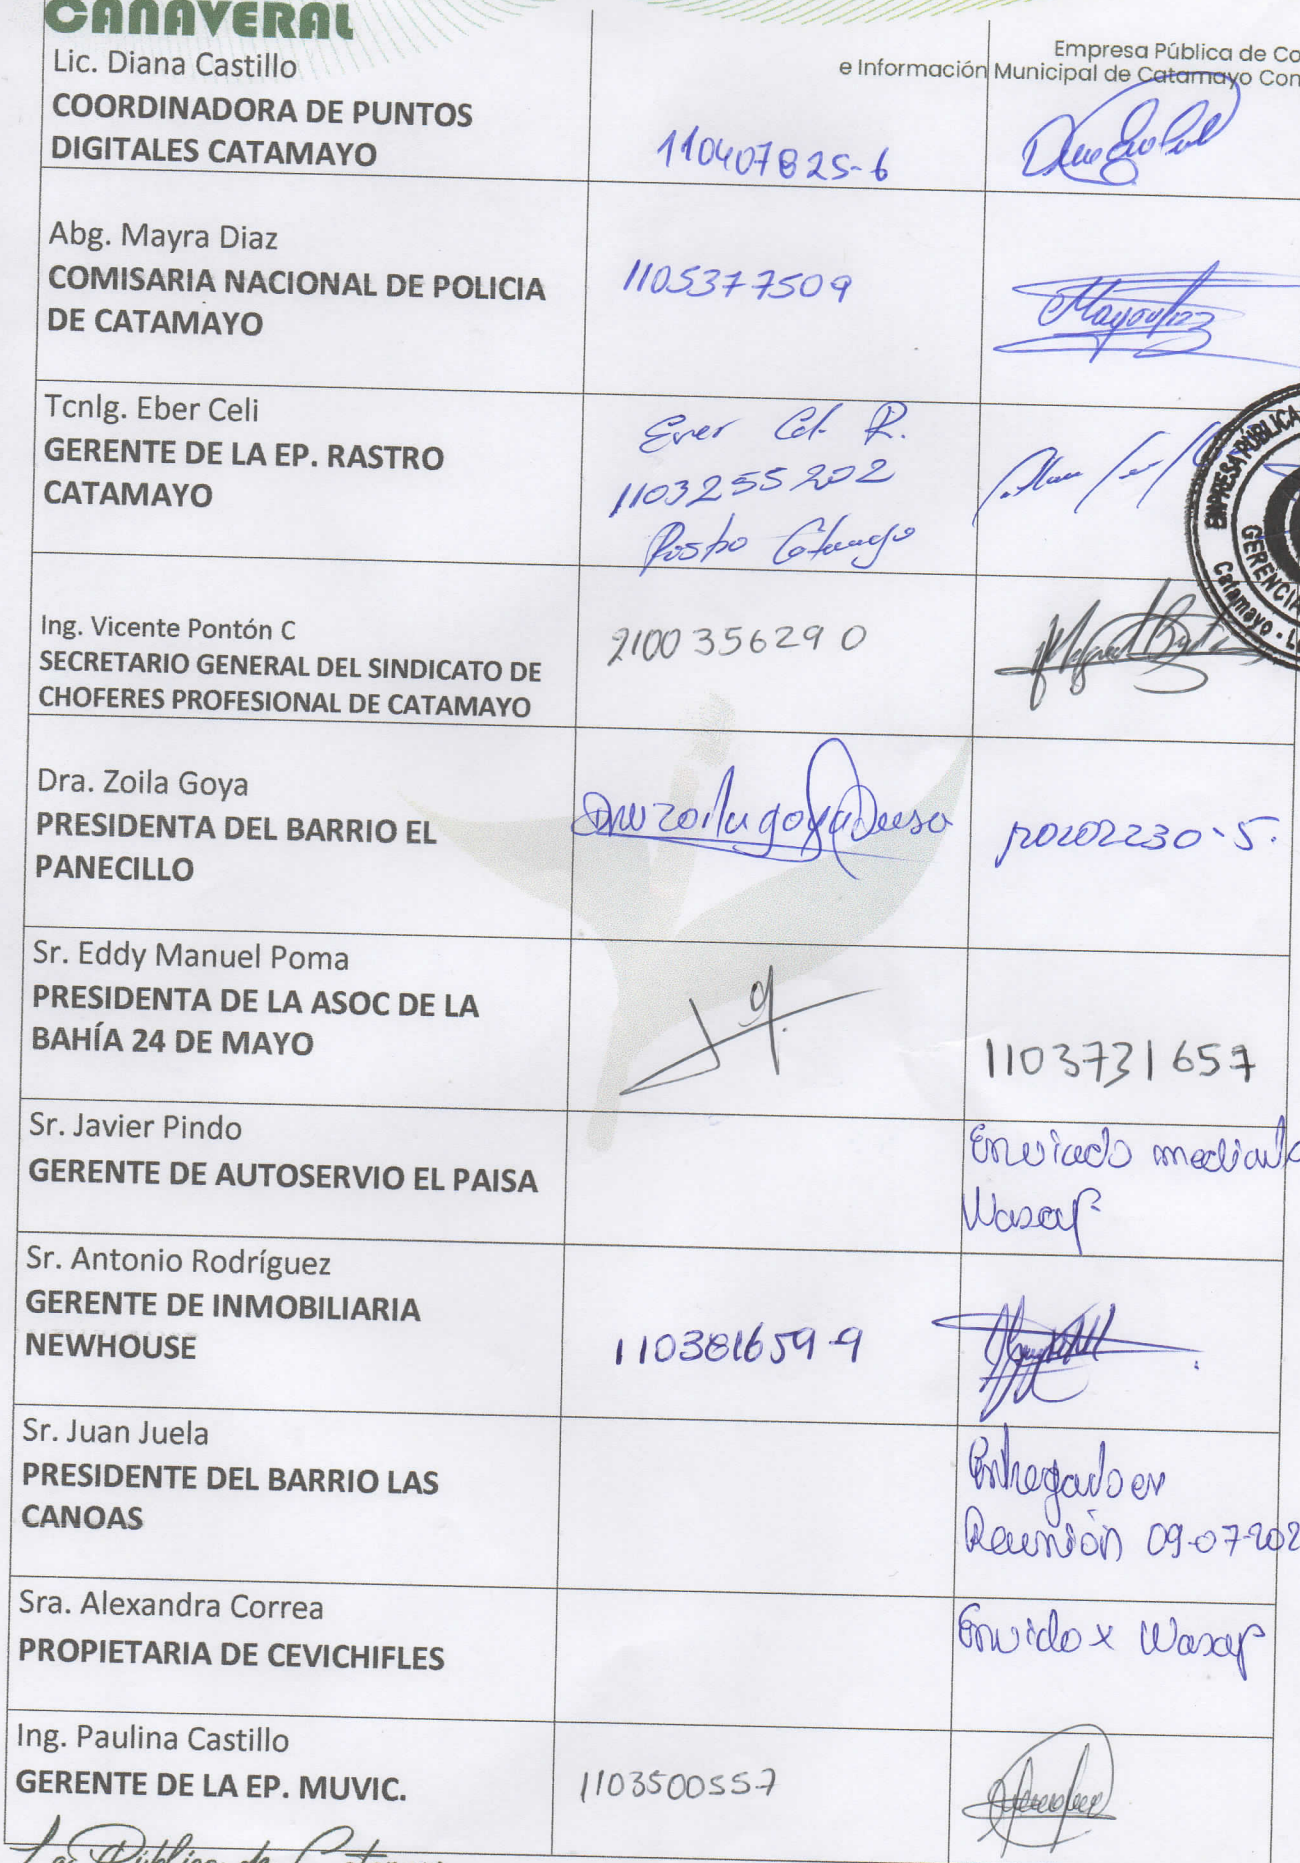 CAÑAVERAL
Empresa Pública de Co
e Información Municipal de Catamayo Con
Lic. Diana Castillo
COORDINADORA DE PUNTOS
DIGITALES CATAMAYO
110407825-6
Abg. Mayra Diaz
COMISARIA NACIONAL DE POLICIA
DE CATAMAYO
1105377509
Tcnlg. Eber Celi
GERENTE DE LA EP. RASTRO
CATAMAYO
Ever Cel. R.
1103255202
Rastro Catamayo
EMPRESA PÚBLICA
GERENCIA
Catamayo - L
Ing. Vicente Pontón C
SECRETARIO GENERAL DEL SINDICATO DE
CHOFERES PROFESIONAL DE CATAMAYO
2100356290
Dra. Zoila Goya
PRESIDENTA DEL BARRIO EL
PANECILLO
Sr. Eddy Manuel Poma
PRESIDENTA DE LA ASOC DE LA
BAHÍA 24 DE MAYO
1103731657
Sr. Javier Pindo
GERENTE DE AUTOSERVIO EL PAISA
Enviado mediante
Wasap
Sr. Antonio Rodríguez
GERENTE DE INMOBILIARIA
NEWHOUSE
110381659-9
Sr. Juan Juela
PRESIDENTE DEL BARRIO LAS
CANOAS
Entregado en
Reunión 09-07-202
Sra. Alexandra Correa
PROPIETARIA DE CEVICHIFLES
Envido x Wasap
Ing. Paulina Castillo
GERENTE DE LA EP. MUVIC.
1103500557